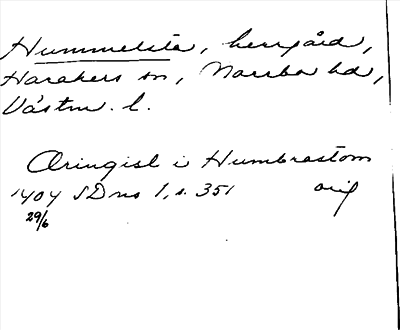 Hummelsta, herrgård,
Harakers sn, Norrbo hd,
Västm. l.
Øringisl i Humbrastom
1404 SD ns 1, s. 351 orig
29/6